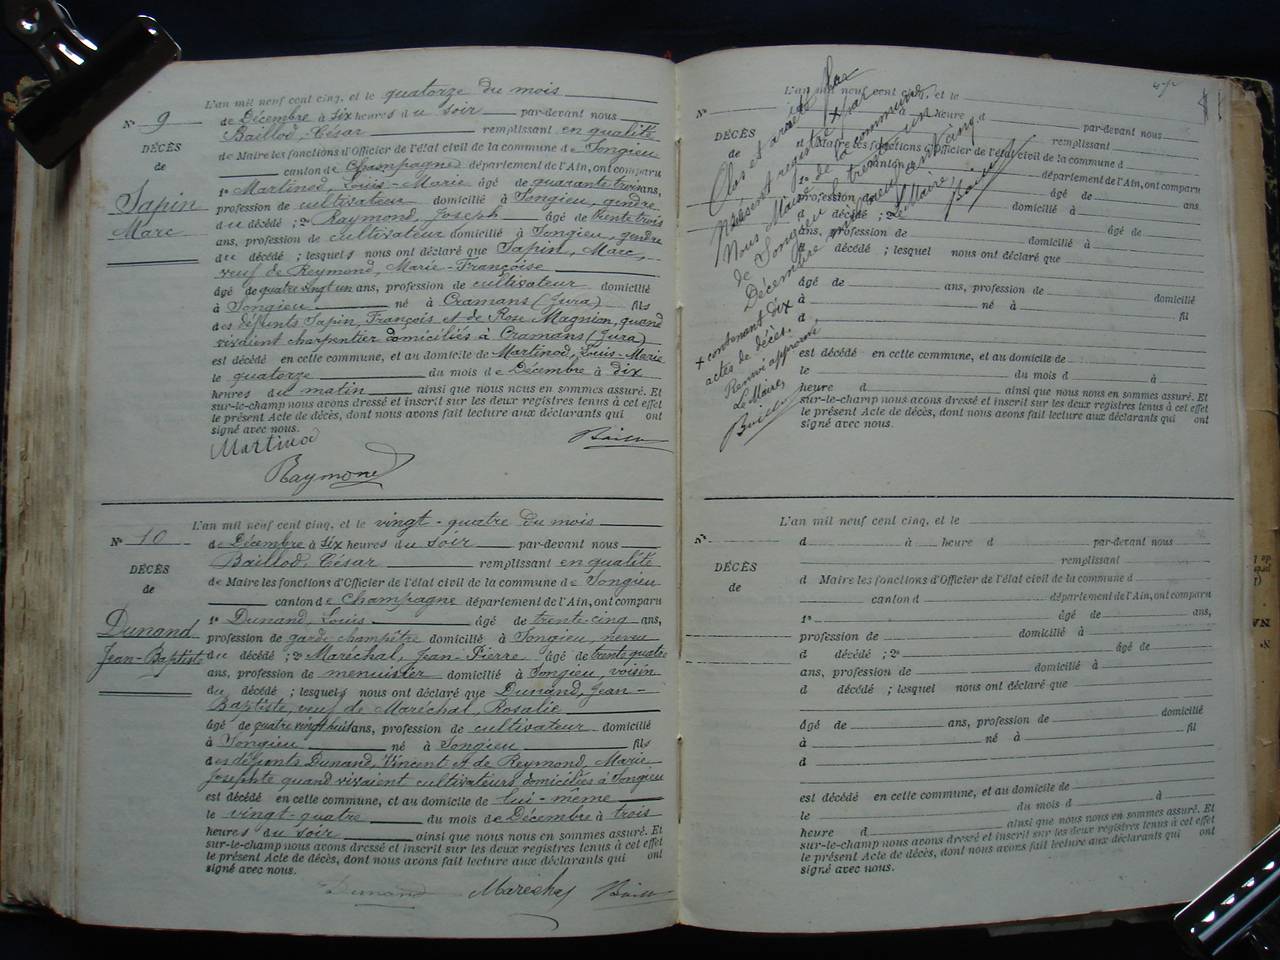 L'an mil neuf cent cinq, et le quatorze du mois
N° 9
de Décembre à six heures du soir par-devant nous
Baillod, César remplissant en qualité
DÉCÈS
de Maire les fonctions d'Officier de l'état civil de la commune de Songieu
de
canton de Champagne département de l'Ain, ont comparu
1° Martinod, Louis-Marie âgé de quarante trois ans,
Sapin
profession de cultivateur domicilié à Songieu, gendre
Marc
du décédé ; 2° Raymond, Joseph âgé de trente trois
ans, profession de cultivateur domicilié à Songieu, gendre
du décédé ; lesquels nous ont déclaré que Sapin, Marc,
veuf de Reymond, Marie-Françoise
âgé de quatre vingt un ans, profession de cultivateur domicilié
à Songieu né à Cramans (Jura) fils
des défunts Sapin, François et de Rose Magnion, quand
vivaient charpentier domiciliés à Cramans (Jura)
est décédé en cette commune, et au domicile de Martinod, Louis-Marie
le quatorze du mois de Décembre à dix
heures du matin ainsi que nous nous en sommes assuré. Et
sur-le-champ nous avons dressé et inscrit sur les deux registres tenus à cet effet
le présent Acte de décès, dont nous avons fait lecture aux déclarants qui ont
signé avec nous.
Martinod
Raymond
L'an mil neuf cent cinq, et le vingt-quatre du mois
N° 10
de Décembre à six heures du soir par-devant nous
Baillod, César remplissant en qualité
DÉCÈS
de Maire les fonctions d'Officier de l'état civil de la commune de Songieu
de
canton de Champagne département de l'Ain, ont comparu
1° Dunand, Louis âgé de trente-cinq ans,
Dunand
profession de garde champêtre domicilié à Songieu, neveu
Jean-Baptiste
du décédé ; 2° Maréchal, Jean-Pierre âgé de trente quatre
ans, profession de menuisier domicilié à Songieu, voisin
du décédé ; lesquels nous ont déclaré que Dunand, Jean-
Baptiste, veuf de Maréchal, Rosalie
âgé de quatre vingt huit ans, profession de cultivateur domicilié
à Songieu né à Songieu fils
des défunts Dunand, Vincent et de Reymond, Marie
Josephte quand vivaient cultivateurs domiciliés à Songieu
est décédé en cette commune, et au domicile de lui-même
le vingt-quatre du mois de Décembre à trois
heures du soir ainsi que nous nous en sommes assuré. Et
sur-le-champ nous avons dressé et inscrit sur les deux registres tenus à cet effet
le présent Acte de décès, dont nous avons fait lecture aux déclarants qui ont
signé avec nous.
Dunand Maréchal
L'an mil neuf cent cinq, et le
N°
à heure d par-devant nous
remplissant
DÉCÈS
d Maire les fonctions d'Officier de l'état civil de la commune d
de
canton d département de l'Ain, ont comparu
1° âgé de ans
profession de domicilié à
d décédé ; 2° âgé de
ans, profession de domicilié à
d décédé ; lesquel nous ont déclaré que
âgé de ans, profession de domicilié
à né à fil
d
est décédé en cette commune, et au domicile de
le du mois d à
heure d ainsi que nous nous en sommes assuré. Et
sur-le-champ nous avons dressé et inscrit sur les deux registres tenus à cet effet
le présent Acte de décès, dont nous avons fait lecture aux déclarants qui ont
signé avec nous.
Clos et arrêté le
présent registre + par
Nous Maire de la commune
de Songieu le trente un
Décembre mil neuf cent cinq.
Le Maire
+ contenant dix
actes de décès.
Renvoi approuvé
Le Maire,
L'an mil neuf cent cinq, et le
N°
d à heure d par-devant nous
remplissant
DÉCÈS
d Maire les fonctions d'Officier de l'état civil de la commune d
de
canton d département de l'Ain, ont comparu
1° âgé de ans,
profession de domicilié à
d décédé ; 2° âgé de
ans, profession de domicilié à
d décédé ; lesquel nous ont déclaré que
âgé de ans, profession de domicilié
à né à fil
d
est décédé en cette commune, et au domicile de
le du mois d à
heure d ainsi que nous nous en sommes assuré. Et
sur-le-champ nous avons dressé et inscrit sur les deux registres tenus à cet effet
le présent Acte de décès, dont nous avons fait lecture aux déclarants qui ont
signé avec nous.